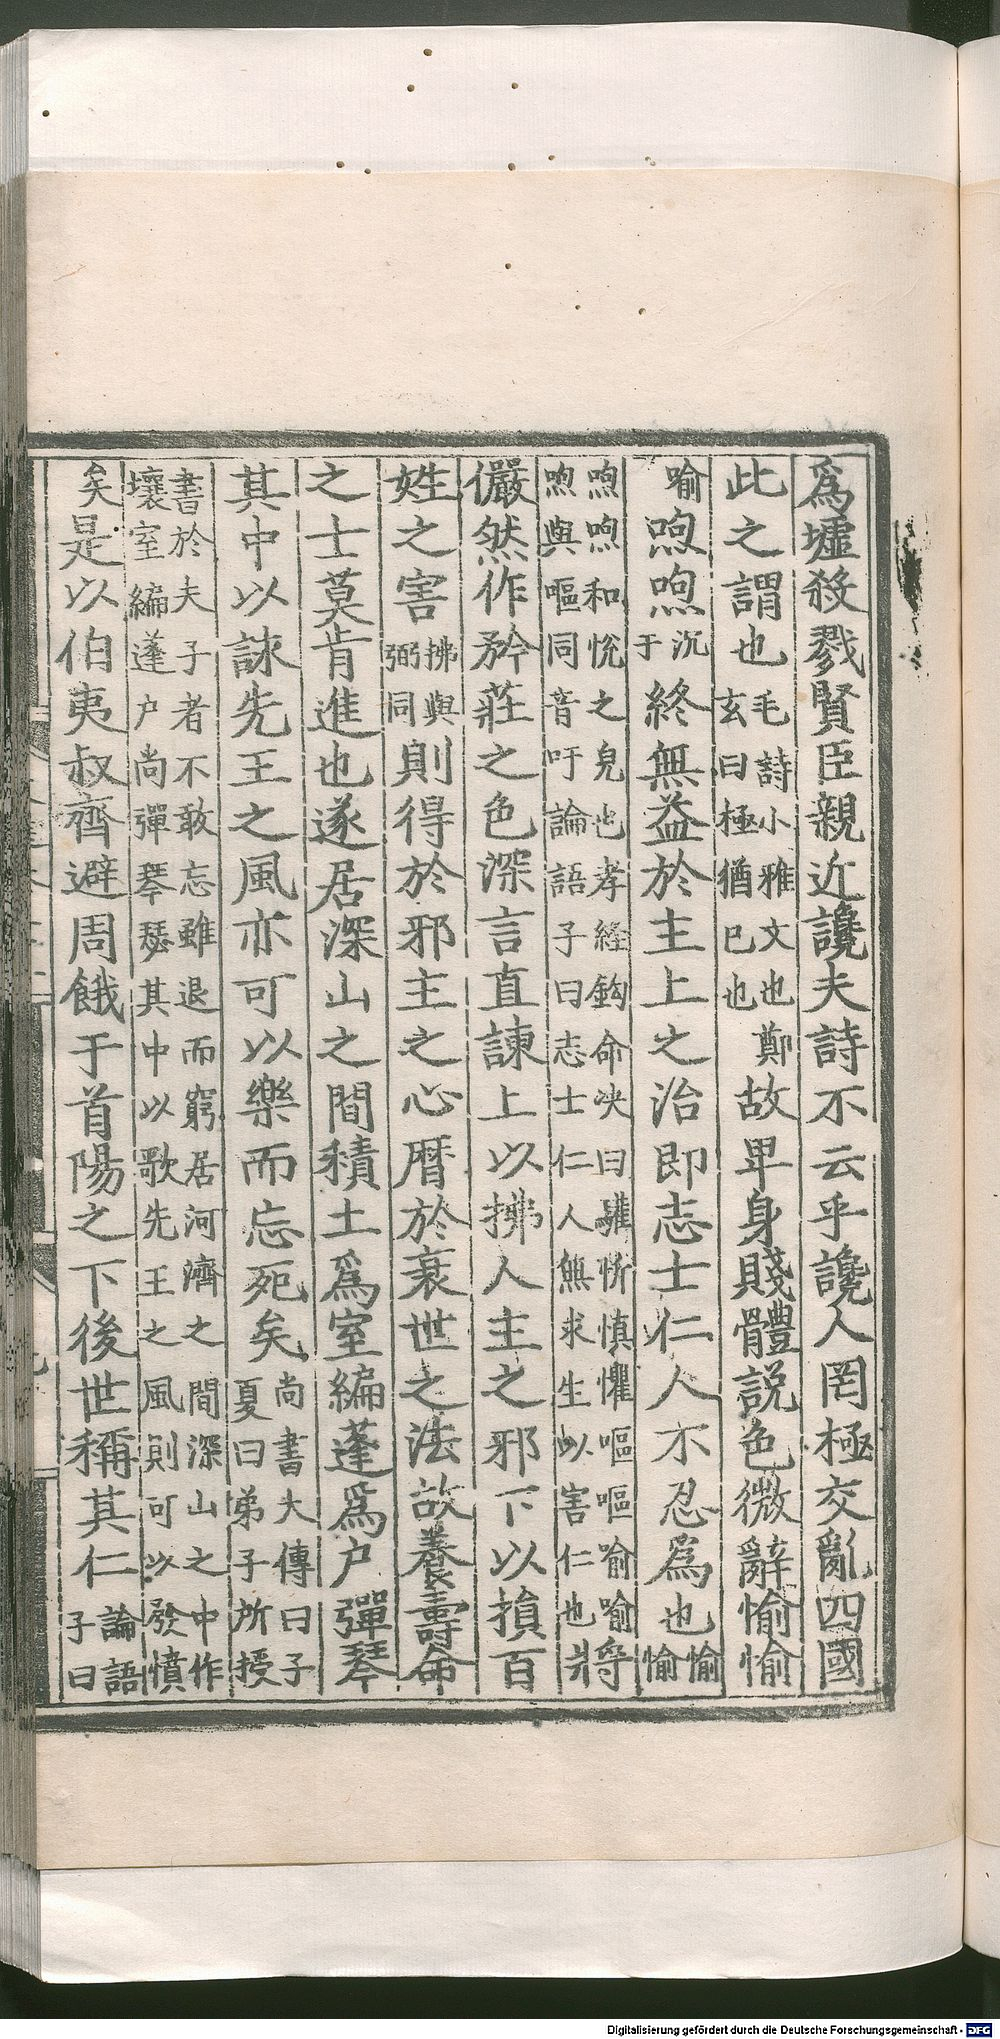 爲墟殺戮賢臣親近讒夫詩不云乎讒人罔極交亂四國
此之謂也毛詩小雅文也鄭玄曰極猶已也故卑身賤體說色微辭愉愉
喻喣喣沉于終無益於主上之治即志士仁人不忍爲也愉愉
喣喣和悅之皃也孝經鈎命决曰驩忻慎懼嘔嘔喻喻喣與嘔同音吁論語子曰志士仁人無求生以害仁也將
儼然作矜莊之色深言直諫上以拂人主之邪下以損百
姓之害拂與弼同則得於邪主之心曆於衰世之法故養壽命
之士莫肯進也遂居深山之間積土爲室編蓬爲户彈琴
其中以詠先王之風亦可以樂而忘死矣尚書大傳曰子夏曰弟子所授
書於夫子者不敢忘雖退而窮居河濟之間深山之中作壤室編蓬户尚彈琴瑟其中以歌先王之風則可以發憤
矣是以伯夷叔齊避周餓于首陽之下後世稱其仁論語子曰
Digitalisierung gefördert durch die Deutsche Forschungsgemeinschaft - DFG